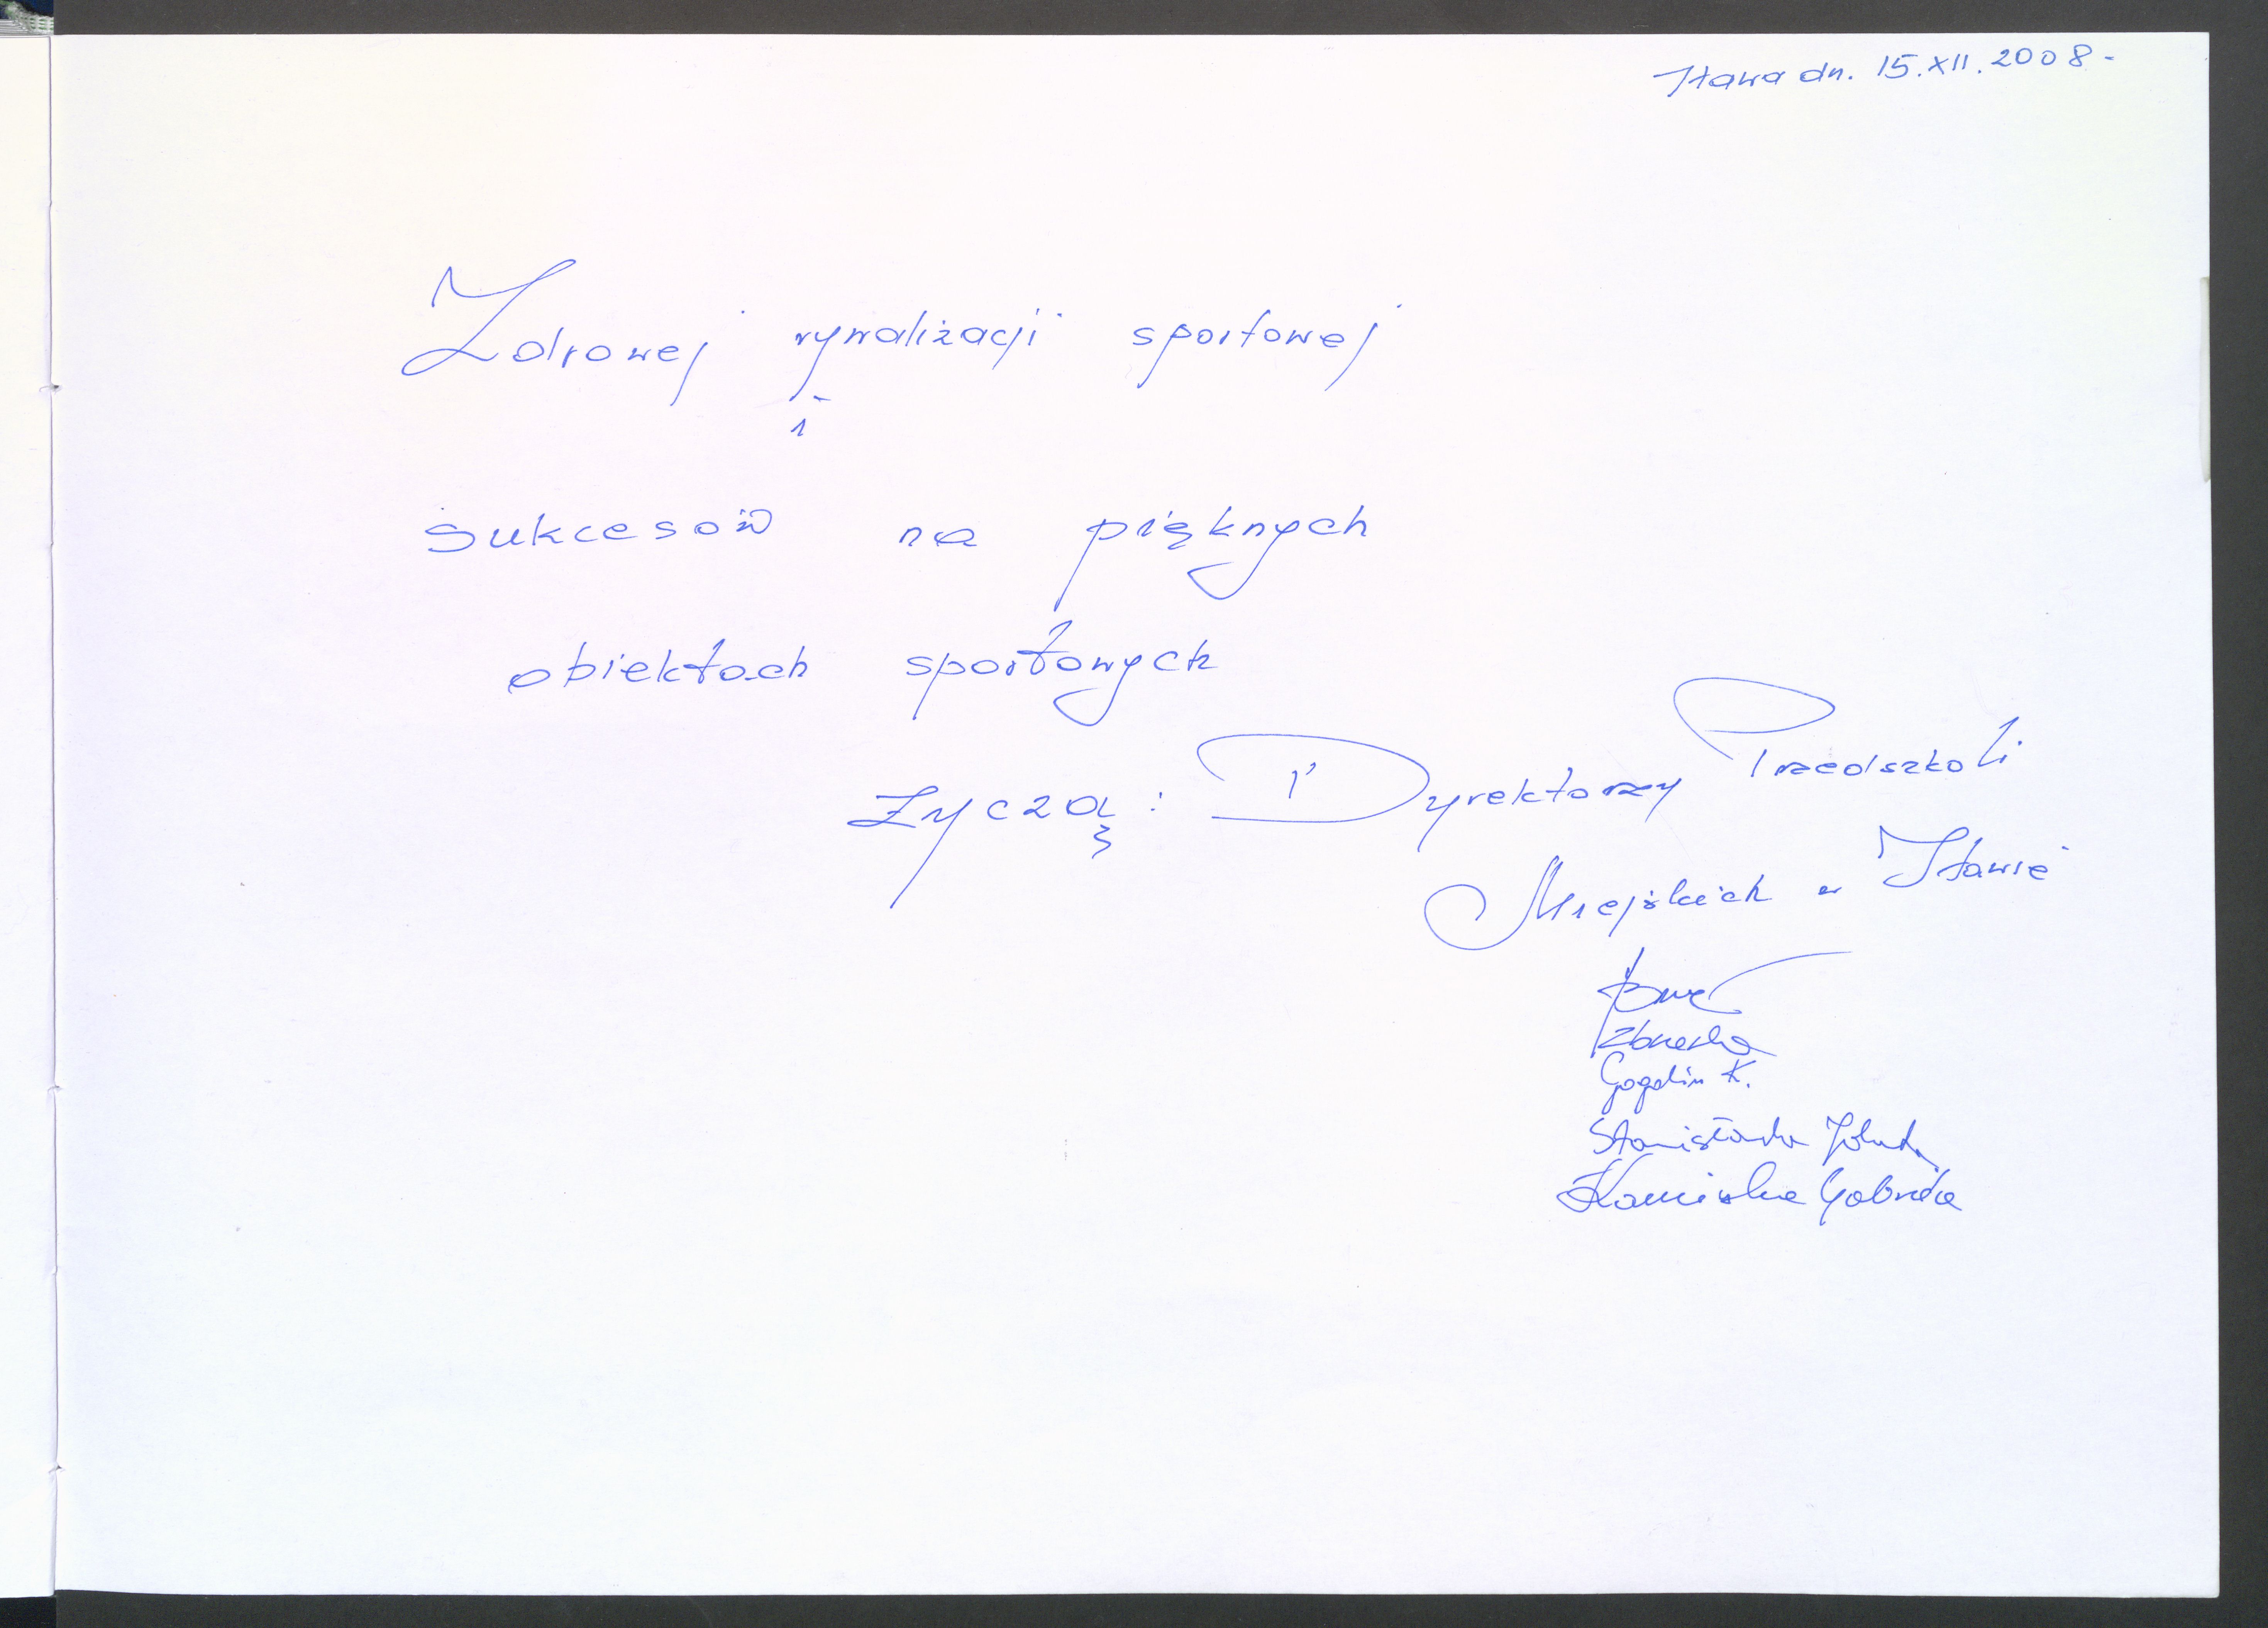 Iława dn. 15.XII.2008-
Zdrowej rywalizacji sportowej
i
sukcesów na pięknych
obiektach sportowych
Życzą: Dyrektorzy Przedszkoli
Miejskich w Iławie
Gogolin K.
Stanisławska
Kamińska Gabriela